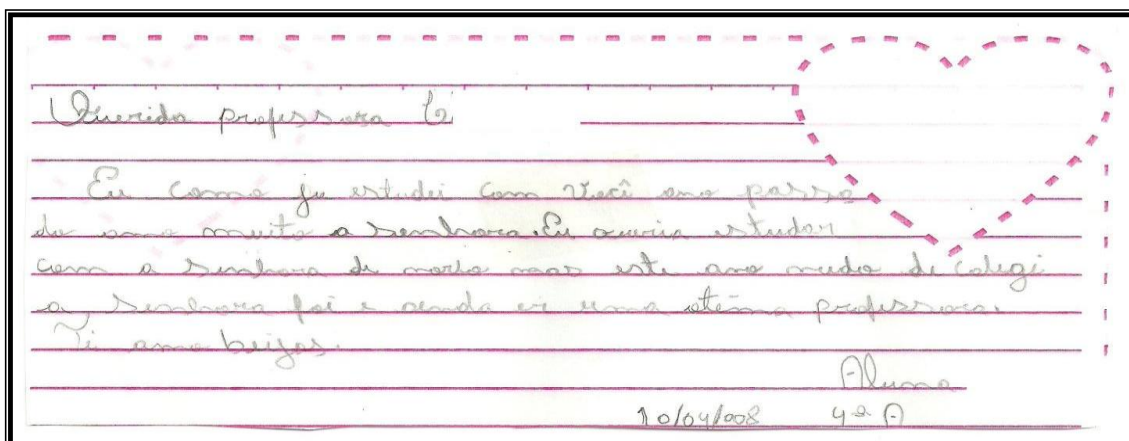 Querida professora Ci
Eu como ja estudei com você ano passa
do amo muito a senhora. Eu queria estudar
com a senhora de novo mas este ano mudo de colegi
a senhora foi e ainda er uma otima professora.
Ti amo beijos.
Aluna
10/04/008 4ª A